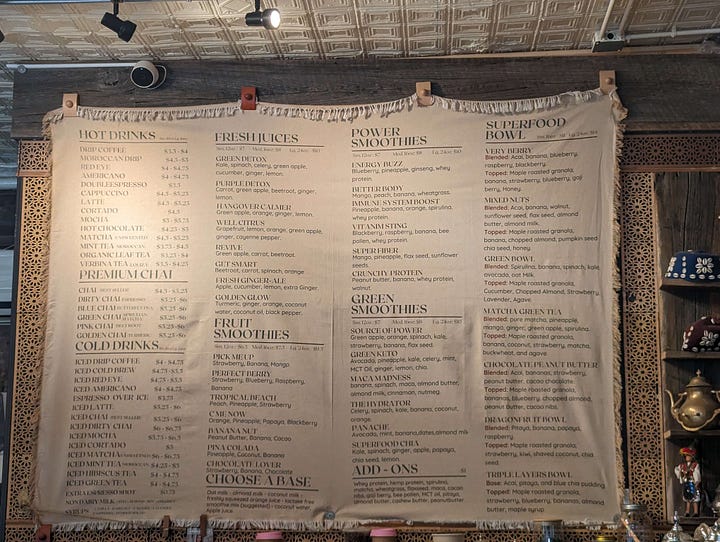 HOT DRINKS
DRIP COFFEE $3.5 - $4
MOROCCAN DRIP $4.5 - $5
RED EYE $4 - $4.75
AMERICANO $4 - $4.75
DOUBLE ESPRESSO $3.5
CAPPUCCINO $4.5 - $5.25
LATTE $4.5 - $5.25
CORTADO $4.5
MOCHA $5 - $5.75
HOT CHOCOLATE $4.25 - $5
MATCHA $4.5 - $5.25
MINT TEA MOROCCAN
ORGANIC LEAF TEA
VERBENA TEA
PREMIUM CHAI
CHAI BEST SELLER $4.5 - $5.25
DIRTY CHAI ESPRESSO $5.25 - $6
BLUE CHAI $5.25 - $6
GREEN CHAI $5.25 - $6
PINK CHAI BEET ROOT $5.25 - $6
GOLDEN CHAI
COLD DRINKS
ICED DRIP COFFEE $4 - $4.75
ICED COLD BREW $4.75 - $5.5
ICED RED EYE $4.75 - $5.5
ICED AMERICANO $4 - $4.75
ESPRESSO OVER ICE $3.75
ICED LATTE $5.25 - $6
ICED CHAI BEST SELLER $5.25 - $6
ICED DIRTY CHAI $6 - $6.75
ICED MOCHA $5.75 - $6.5
ICED CORTADO $5
ICED MATCHA $6 - $6.75
ICED MINT TEA MOROCCAN $4.25 - $5
ICED HIBISCUS TEA $4 - $4.75
ICED GREEN TEA $4 - $4.75
EXTRA ESPRESSO SHOT
NON DAIRY MILK
SYRUPS
FRESH JUICES
GREEN DETOX
Kale, spinach, celery, green apple,
cucumber, ginger, lemon.
PURPLE DETOX
Carrot, green apple, beetroot, ginger,
lemon.
HANGOVER CALMER
Green apple, orange, ginger, lemon.
WELL CITRUS
Grapefruit, lemon, orange, green apple,
ginger, cayenne pepper.
REVIVE
Green apple, carrot, beetroot
GET SMART
Beetroot, carrot, spinach, orange
FRESH GINGER-ALE
Apple, cucumber, lemon, extra Ginger.
GOLDEN GLOW
Turmeric, ginger, orange, coconut
water, coconut oil, black pepper.
FRUIT
SMOOTHIES
PICK ME UP
Strawberry, Banana, Mango
PERFECT BERRY
Strawberry, Blueberry, Raspberry,
Banana
TROPICAL BEACH
Peach, Pineapple, Strawberry
C ME NOW
Orange, Pineapple, Papaya, Blackberry
BANANA NUT
Peanut Butter, Banana, Cacao
PINA COLADA
Pineapple, Coconut, Banana
CHOCOLATE LOVER
Strawberry, Banana, Chocolate
CHOOSE A BASE
Oat milk - almond milk - coconut milk -
freshly squeezed orange juice - lactose free
smoothie mix (suggested) - coconut water,
Apple juice.
POWER
SMOOTHIES
ENERGY BUZZ
Blueberry, pineapple, ginseng, whey
protein.
BETTER BODY
Mango, peach, banana, wheatgrass.
IMMUNE SYSTEM BOOST
Pineapple, banana, orange, spirulina,
whey protein.
VITAMIN STING
Blackberry, raspberry, banana, bee
pollen, whey protein.
SUPER FIBER
Mango, pineapple, flax seed, sunflower
seeds.
CRUNCHY PROTEIN
Peanut butter, banana, whey protein,
walnut.
GREEN
SMOOTHIES
SOURCE OF POWER
Green apple, orange, spinach, kale,
strawberry, banana, flax seed.
GREEN KETO
Avocado, pineapple, kale, celery, mint,
MCT Oil, ginger, lemon, chia.
MACA MADNESS
banana, spinach, maca, almond butter,
almond milk, cinnamon, nutmeg.
THE HYDRATOR
Celery, spinach, kale, banana, coconut,
orange.
PANACHE
Avocado, mint, banana,dates,almond milk
SUPERFOOD CHIA
Kale, spinach, ginger, apple, papaya,
chia seed, lemon.
ADD - ONS
Whey protein, hemp protein, spirulina,
matcha, wheatgrass, flaxseed, maca, cacao
nibs, goji berry, bee pollen, MCT oil, pitaya,
almond butter, cashew butter, peanutbutter.
SUPERFOOD
BOWL
VERY BERRY
Blended: Acai, banana, blueberry,
raspberry, blackberry.
Topped: Maple roasted granola,
banana, strawberry, blueberry, goji
berry, Honey.
MIXED NUTS
Blended: Acai, banana, walnut,
sunflower seed, flax seed, almond
butter, almond milk.
Topped: Maple roasted granola,
banana, chopped almond, pumpkin seed
chia seed, honey
GREEN BOWL
Blended: Spirulina, banana, spinach, kale,
avocado, oat Milk
Topped: Maple roasted granola,
Cucumber, Chopped Almond, Strawberry,
Lavender, Agave.
MATCHA GREEN TEA
Blended: pure matcha, pineapple,
mango, ginger, green apple, spirulina.
Topped: Maple roasted granola,
banana, coconut, strawberry, matcha,
buckwheat, and agave
CHOCOLATE PEANUT BUTTER
Blended: Acai, banana, strawberry,
peanut butter, cacao chocolate.
Topped: Maple roasted granola,
banana, blueberry, chopped almond,
peanut butter, cacao nibs.
DRAGON FRUIT BOWL
Blended: Pitaya, banana, papaya,
raspberry.
Topped: Maple roasted granola,
strawberry, kiwi, shaved coconut, chia
seed.
TRIPLE LAYERS BOWL
Base: Acai, pitaya, and blue chia pudding
Topped: Maple roasted granola,
strawberry, blueberry, banana, almond
butter, maple syrup